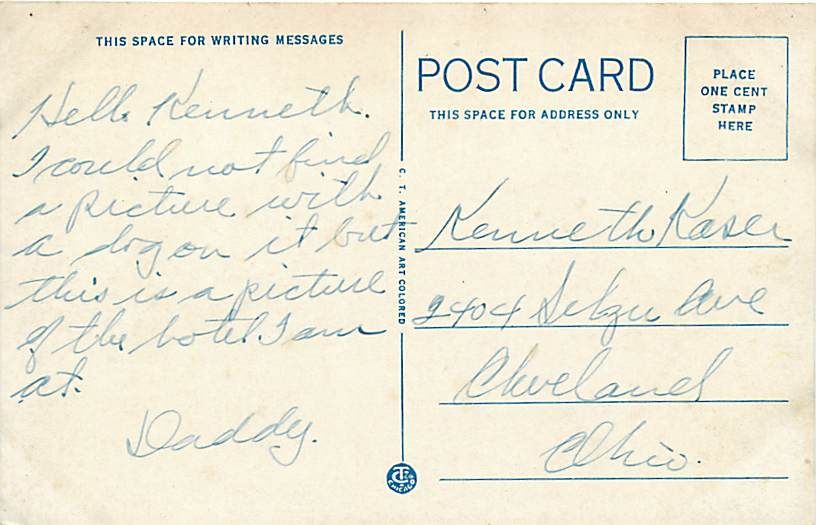 THIS SPACE FOR WRITING MESSAGES
Hello Kenneth.
I could not find
a picture with
a dog on it but
this is a picture
of the hotel I am
at.
Daddy.
C. T. AMERICAN ART COLORED
POST CARD
THIS SPACE FOR ADDRESS ONLY
PLACE
ONE CENT
STAMP
HERE
Kenneth Kaser
2404 Ave
Cleveland
Ohio.
CHICAGO